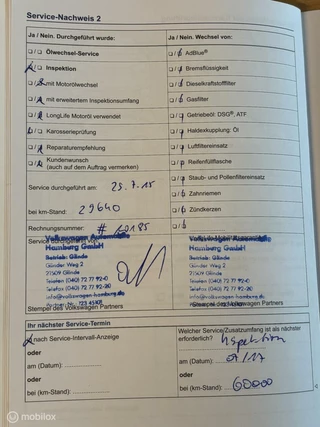 Service-Nachweis 2
Ja / Nein. Durchgeführt wurde:
❑/❑ Ölwechsel-Service
❑/❑ Inspektion
❑/❑ mit Motorölwechsel
❑/❑ mit erweitertem Inspektionsumfang
❑/❑ LongLife Motoröl verwendet
❑/❑ Karosserieprüfung
❑/❑ Reparaturempfehlung
❑/❑ Kundenwunsch
(auch auf dem Auftrag vermerken)
Service durchgeführt am: 29.7.15
bei km-Stand: 29640
Rechnungsnummer: #
Service durchgeführt von:
Volkswagen Automobile
Hamburg GmbH
Betrieb: Glinde
Günder Weg 2
21509 Glinde
Telefon (040) 72 77 92-0
Telefax (040) 72 77 92-20
info@volkswagen-hamburg.de
Stempel des Volkswagen Partners
Ja / Nein. Wechsel von:
❑/❑ AdBlue®
❑/❑ Bremsflüssigkeit
❑/❑ Dieselkraftstofffilter
❑/❑ Gasfilter
❑/❑ Getriebeöl: DSG®, ATF
❑/❑ Haldexkupplung: Öl
❑/❑ Luftfiltereinsatz
❑/❑ Reifenfüllflasche
❑/❑ Staub- und Pollenfiltereinsatz
❑/❑ Zahnriemen
❑/❑ Zündkerzen
❑/❑
Volkswagen Automobile
Hamburg GmbH
Betrieb: Glinde
Günder Weg 2
21509 Glinde
Telefon (040) 72 77 92-0
Telefax (040) 72 77 92-20
info@volkswagen-hamburg.de
Stempel des Volkswagen Partners
Ihr nächster Service-Termin
❑ nach Service-Intervall-Anzeige
oder
am (Datum):
oder
bei (km-Stand):
Welcher Service/Zusatzumfang ist als nächster
erforderlich? Inspektion
am (Datum): 07/17
oder
bei (km-Stand): 60000
© mobilox